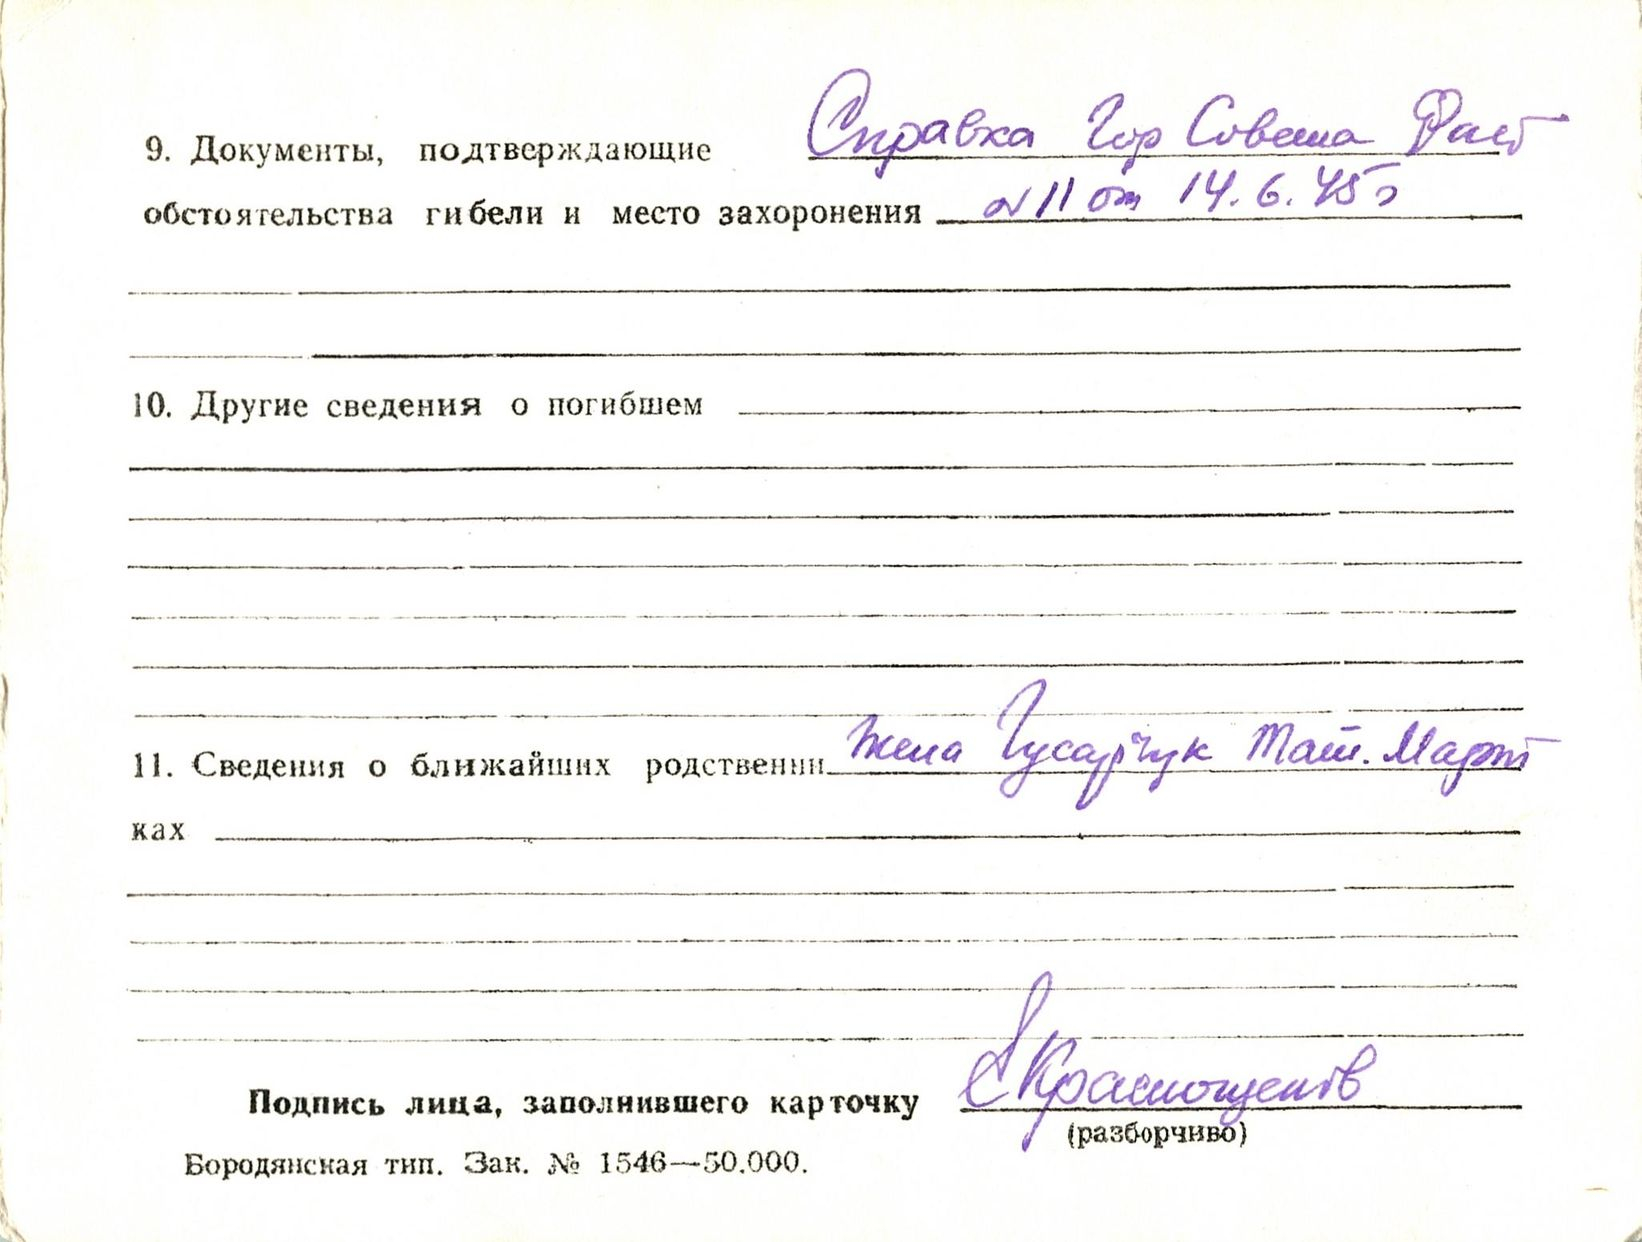 9. Документы, подтверждающие Справка Гор Совета Фаст
обстоятельства гибели и место захоронения № 11 от 14.6.45 г
10. Другие сведения о погибшем
11. Сведения о ближайших родственни Жена Гусарчук Тат. Март
ках
Подпись лица, заполнившего карточку Краснощеков
(разборчиво)
Бородянская тип. Зак. № 1546—50.000.